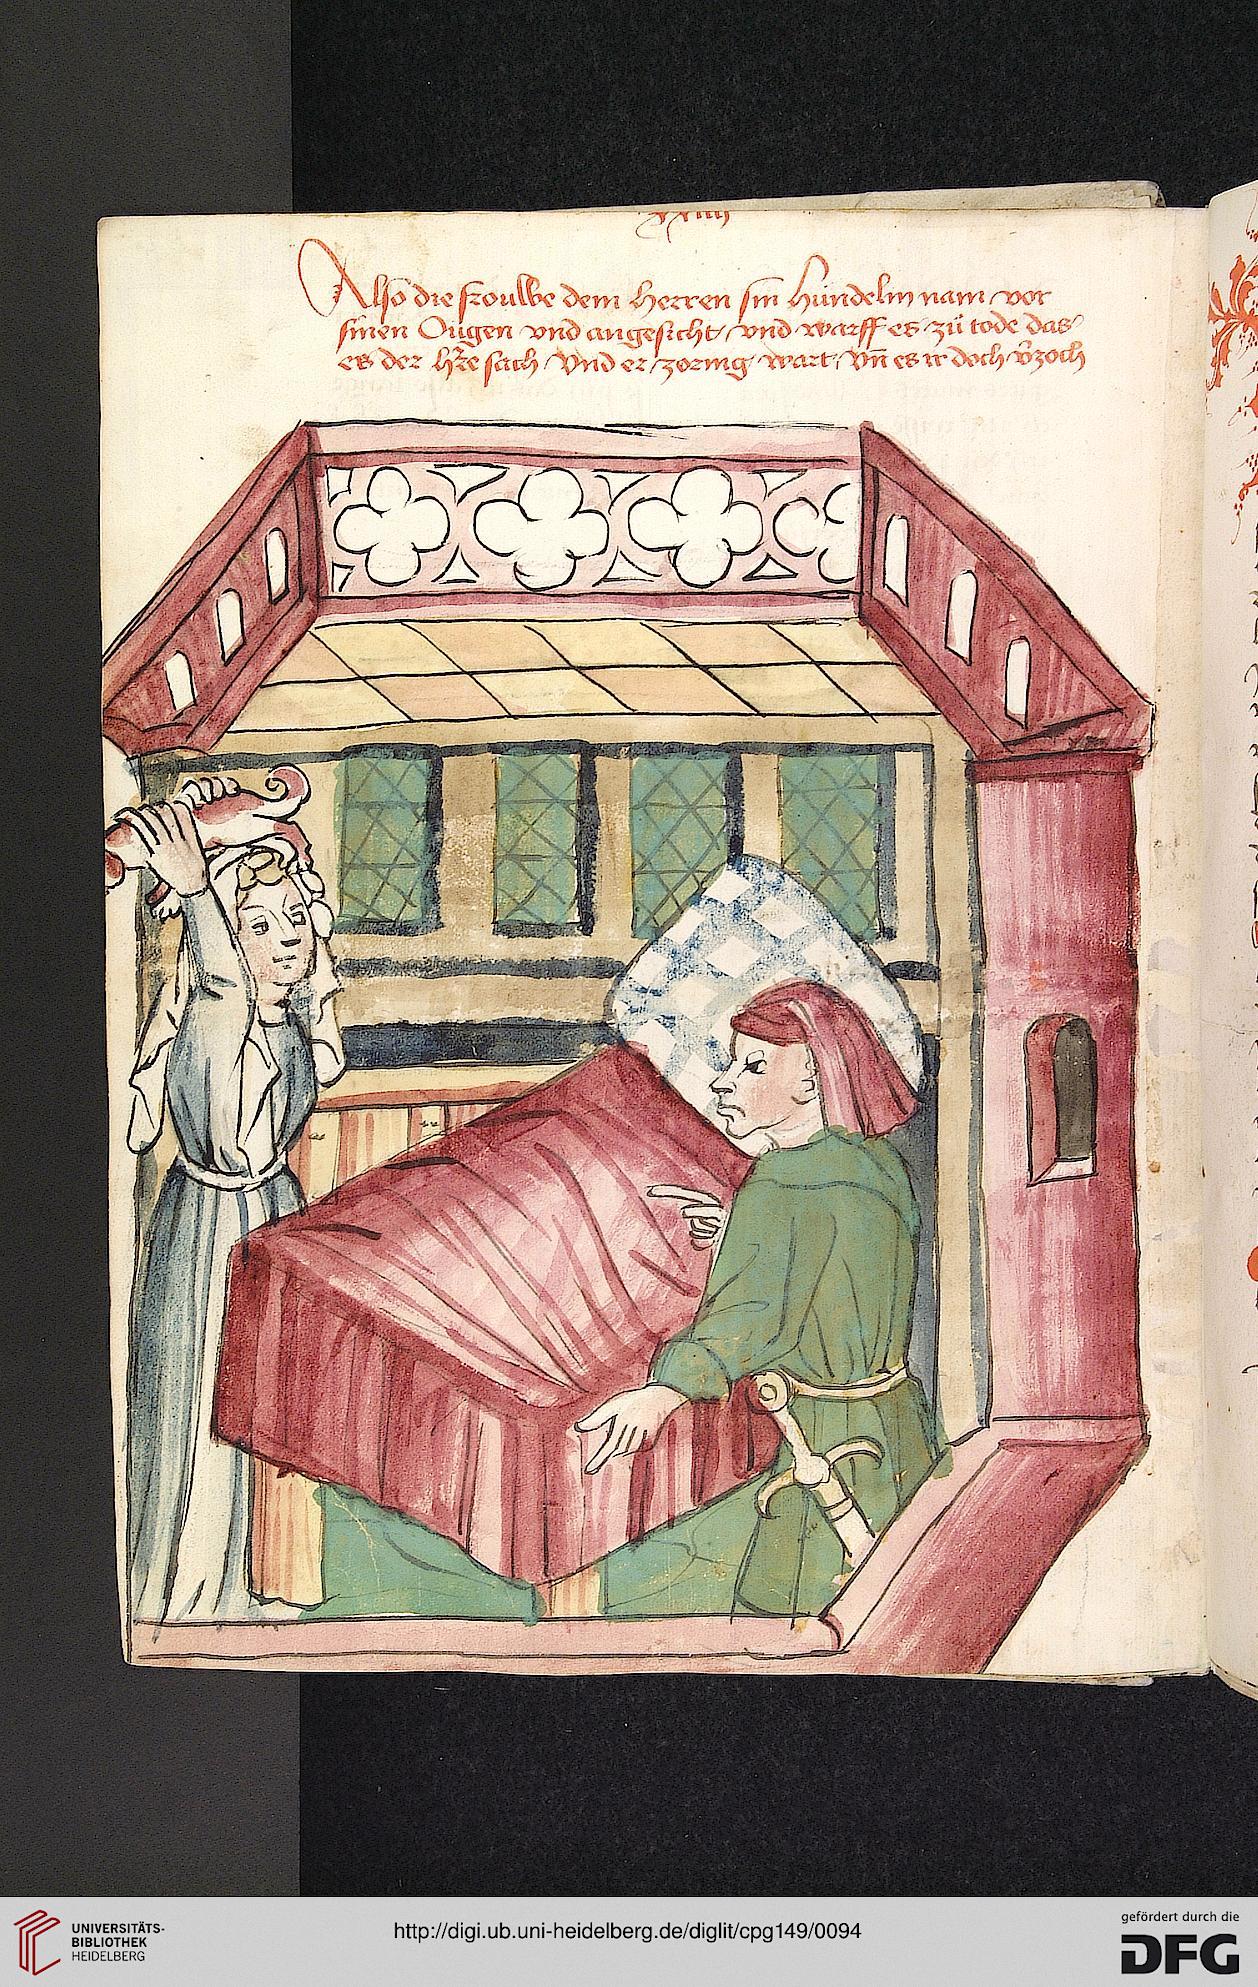 xxiiij
Also die frouwe dem herren sin hündelin nam vor
sinen Ougen vnd angesicht / vnd warff es zů tode das
es der h're sach / Vnd er zornig wart / vn̄ es ir doch v'zoch
UNIVERSITÄTS-
BIBLIOTHEK
HEIDELBERG
http://digi.ub.uni-heidelberg.de/diglit/cpg149/0094
gefördert durch die
DFG